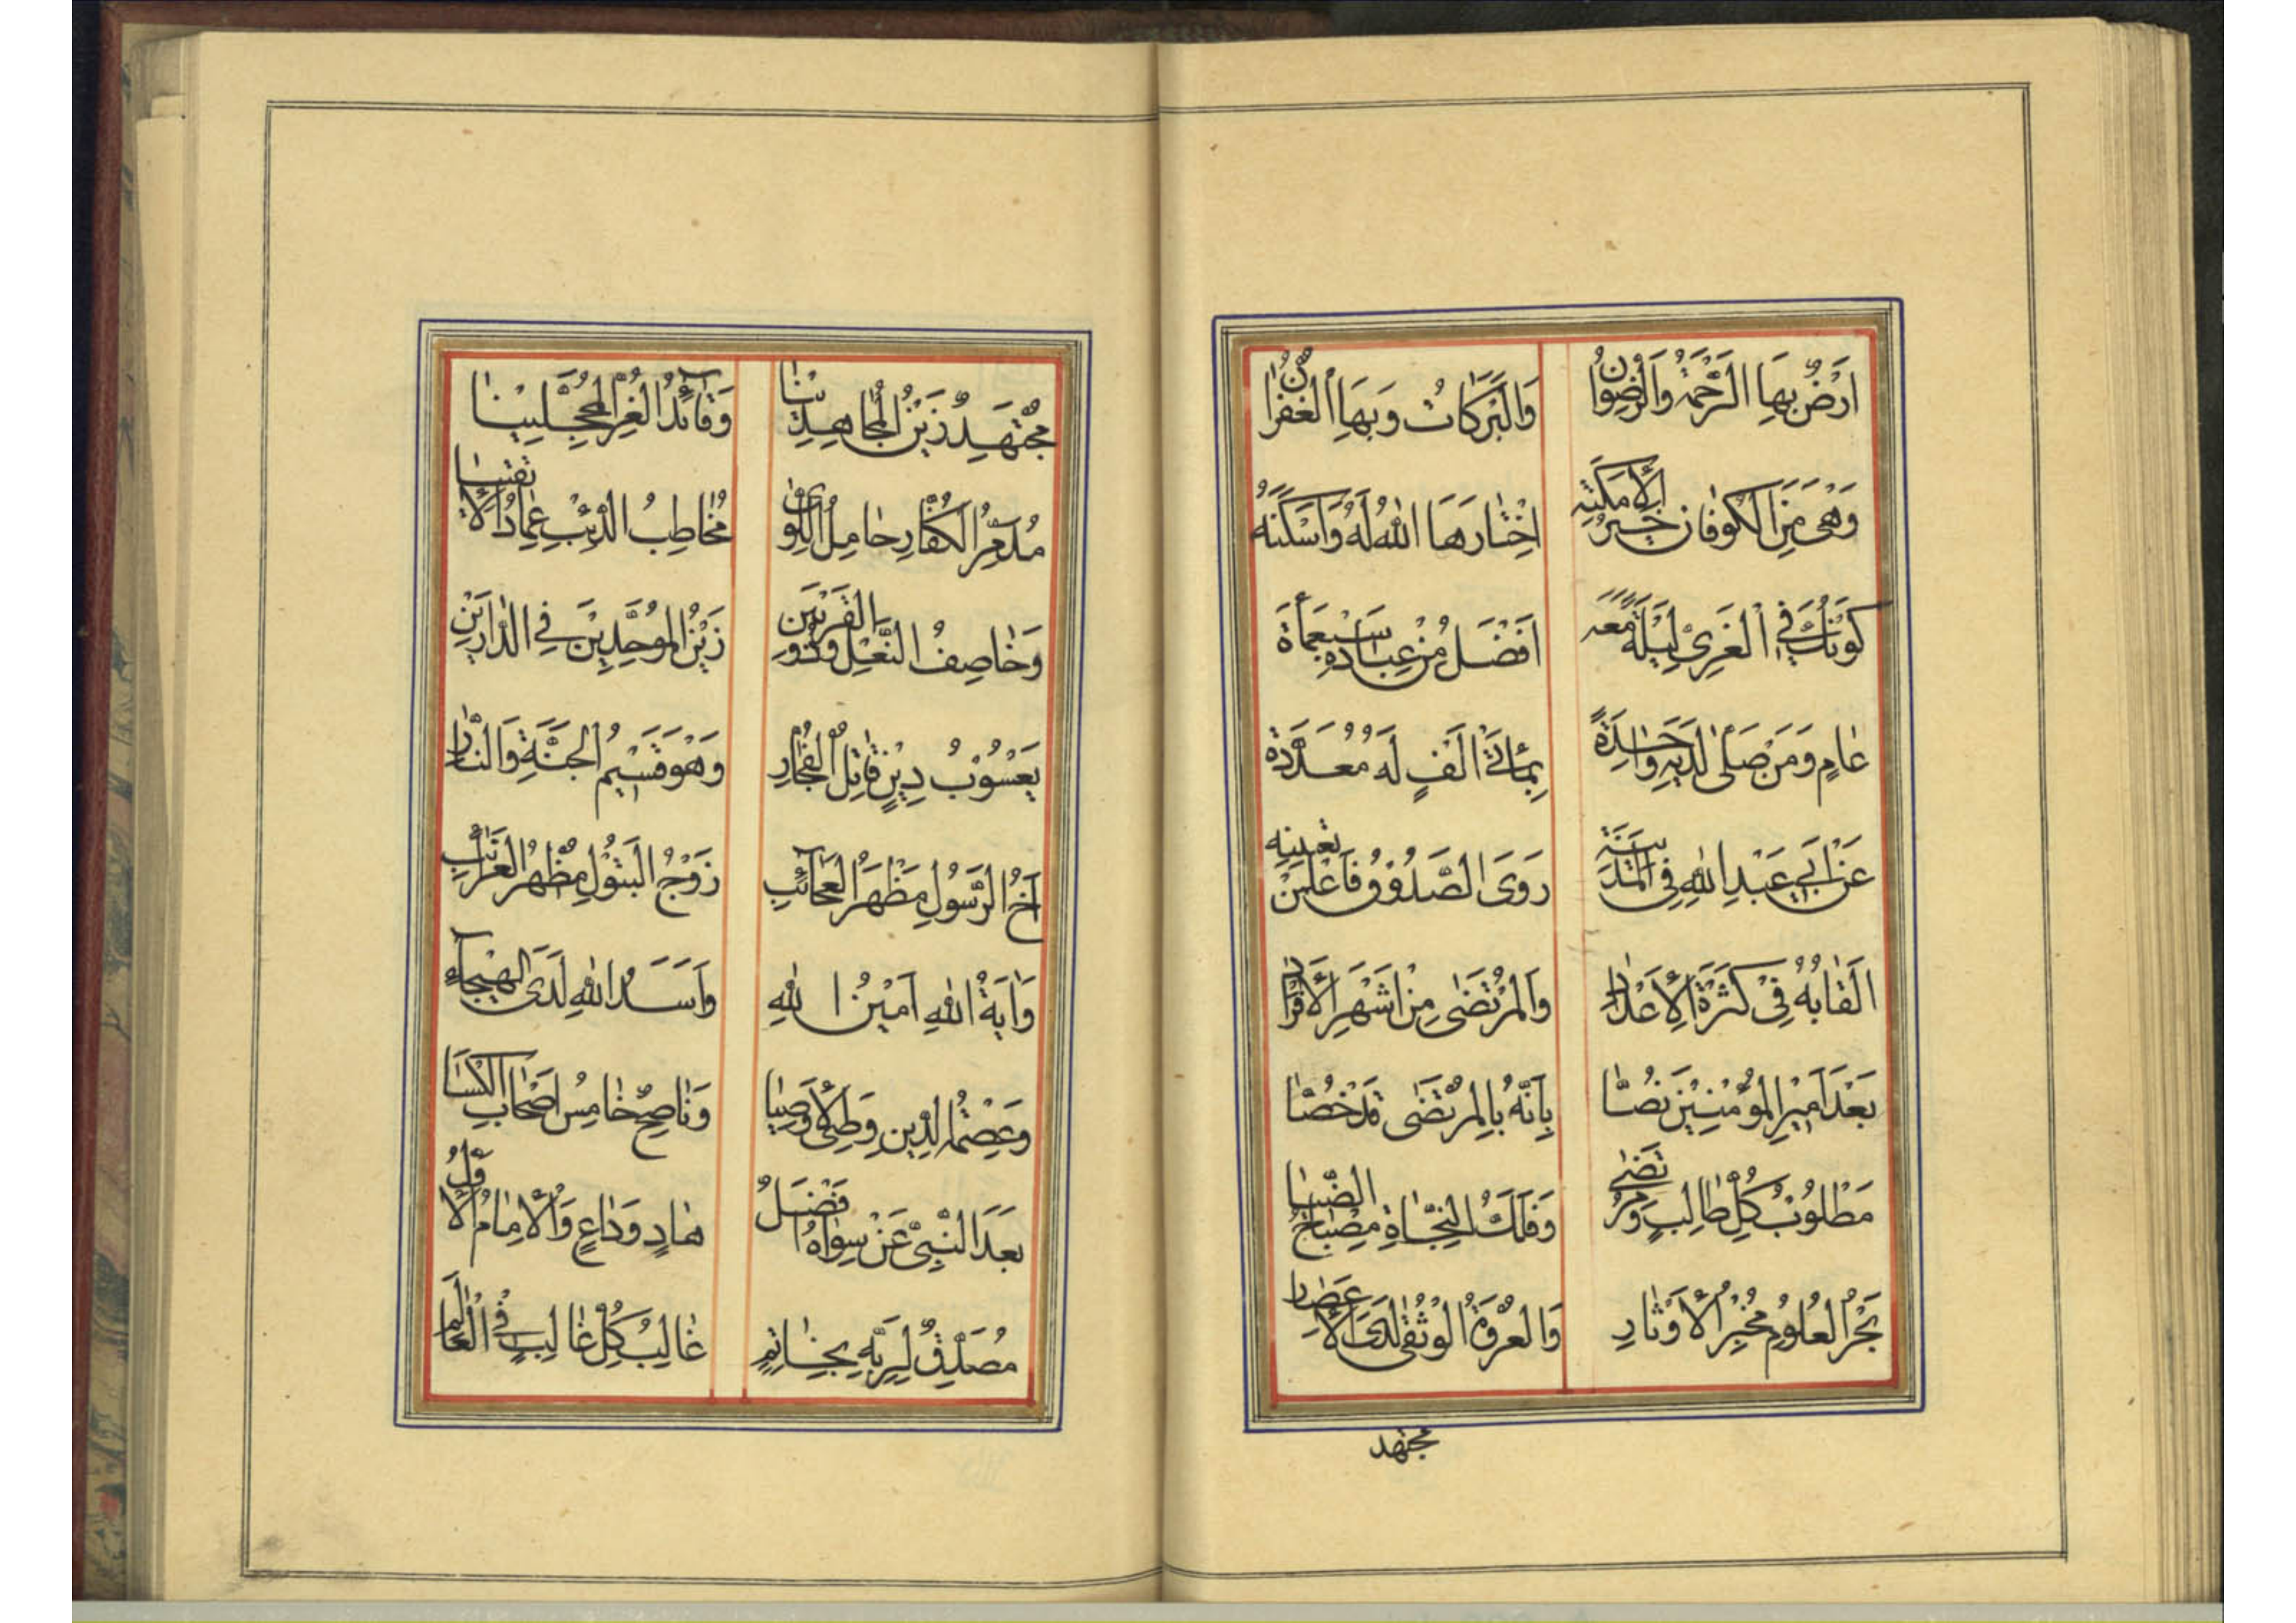 اَرْضٌ بِهَا الرَّحْمَةُ وَالرِّضْوَانُ وَالْبَرَكَاتُ وَبِهَا الْغُفْرَانُ
وَهْىَ مِنَ الْكُوفَانِ خَيْرُ الْاَمْكِنَةِ اِخْتَارَهَا اللّٰهُ لَهُ وَاَسْكَنَهُ
كَوْنُكَ فِي الْغَرِىِّ لَيْلَةً مَعَهُ اَفْضَلُ مِنْ عِبَادَةِ سَبْعَمِأَة
عَامٍ وَمَنْ صَلّٰى لَدَيْهِ وَاحِدَةً بِمِائَتَىْ اَلْفٍ لَهُ مُعَدَّدَة
عَنْ اَبِي عَبْدِ اللّٰهِ فِي الْمَدِينَةِ رَوَى الصَّدُوقُ فَاعْلَمَنْ
اَلْقَابُهُ فِي كَثْرَةِ الْاَعْدَادِ وَالْمُرْتَضٰى مِنْ اَشْهَرِ الْاَفْرَادِ
بَعْدَ اَمِيْرِ الْمُؤْمِنِيْنَ نَصَّا بِاَنَّهُ بِالْمُرْتَضٰى قَدْ خُصَّا
مَطْلُوبُ كُلِّ طَالِبٍ وَمُرْتَضٰى وَفُلْكُ النَّجَاةِ مِصْبَاحُ الضِّيَا
بَحْرُ الْعُلُومِ مُخْبِرُ الْاَوْتَارِ وَالْعُرْوَةُ الْوُثْقٰى لَدَى الْاَعْصَارِ
مجتهد
مُجْتَهِدٌ زَيْنُ الْمُجَاهِدِيْنَا وَقَائِدُ الْغُرِّ الْمُحَجَّلِيْنَا
مُدَمِّرُ الْكُفَّارِ حَامِلُ اللِّوَى مُخَاطِبُ الذِّئْبِ عِمَادُ الْاَتْقِيَا
وَخَاصِفُ النَّعْلِ وَذُو الْقَرْنَيْنِ زَيْنُ الْمُوَحِّدِيْنَ فِي الدَّارَيْنِ
يَعْسُوْبُ دِيْنٍ قَاتِلُ الْفُجَّارِ وَهُوَ قَسِيْمُ الْجَنَّةِ وَالنَّارِ
اَخُ الرَّسُولِ مَظْهَرُ الْعَجَائِبِ زَوْجُ الْبَتُوْلِ مُظْهِرُ الْغَرَائِبِ
وَاٰيَةُ اللّٰهِ اَمِيْنُ اللّٰهِ وَاَسَدُ اللّٰهِ لَدَى الْهَيْجَاءِ
وَعِصْمَةُ الدِّينِ وَصِيُّ الْاَوْصِيَا وَنَاصِحٌ خَامِسُ اَصْحَابِ الْكِسَا
بَعْدَ النَّبِيِّ عَنْ سِوَاهُ اَفْضَلُ هَادٍ وَدَاعٍ وَالْاِمَامُ الْاَوَّلُ
مُصَدِّقٌ لِرَبِّهِ بِخَاتِمِ غَالِبُ كُلِّ غَالِبٍ فِي الْعَالَمِ